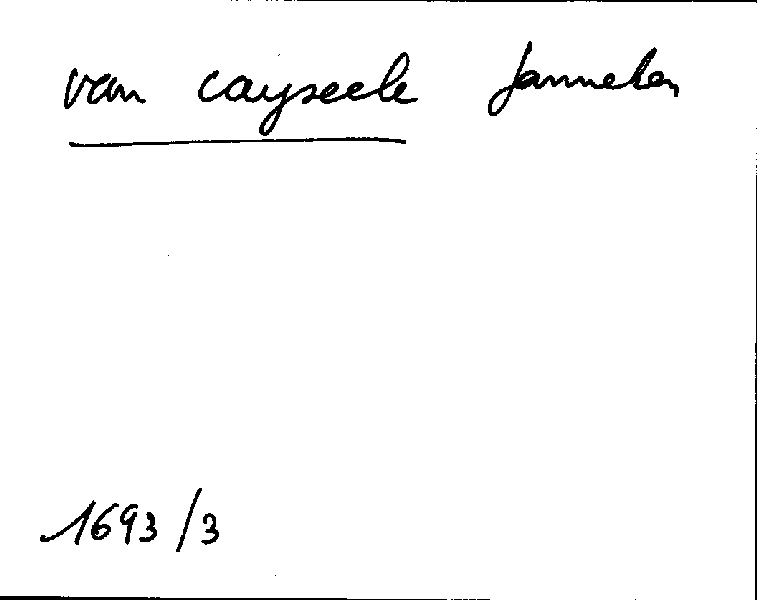 van cayseele Janneken
1693/3